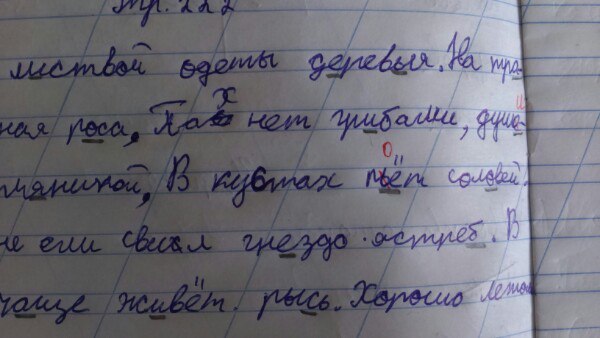 стр. 222
листвой одеты деревья. На тра-
ная роса, Пахнет грибами, души-
мяникой, В кустах поёт соловей.
не ели свил гнездо ястреб. В
чаще живёт рысь. Хорошо летом